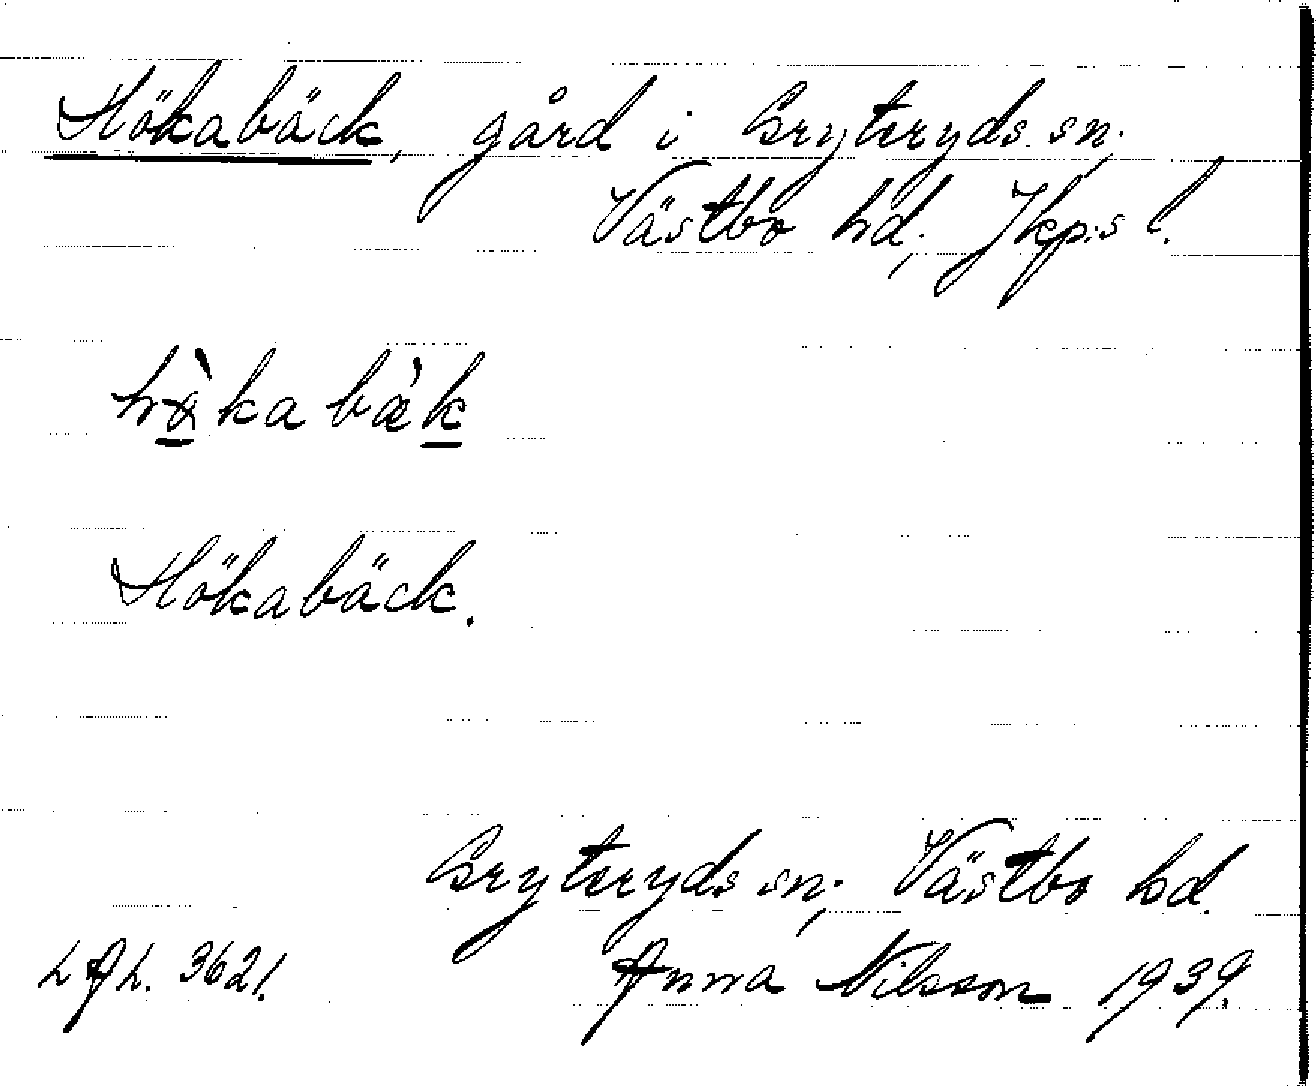 Hökabäck, gård i Gryteryds sn;
Västbo hd, Jkp:s l.
hø̀ka bæ̀k
Hökabäck.
Gryteryds sn; Västbo hd.
Anna Nilsson 1939.
3621.